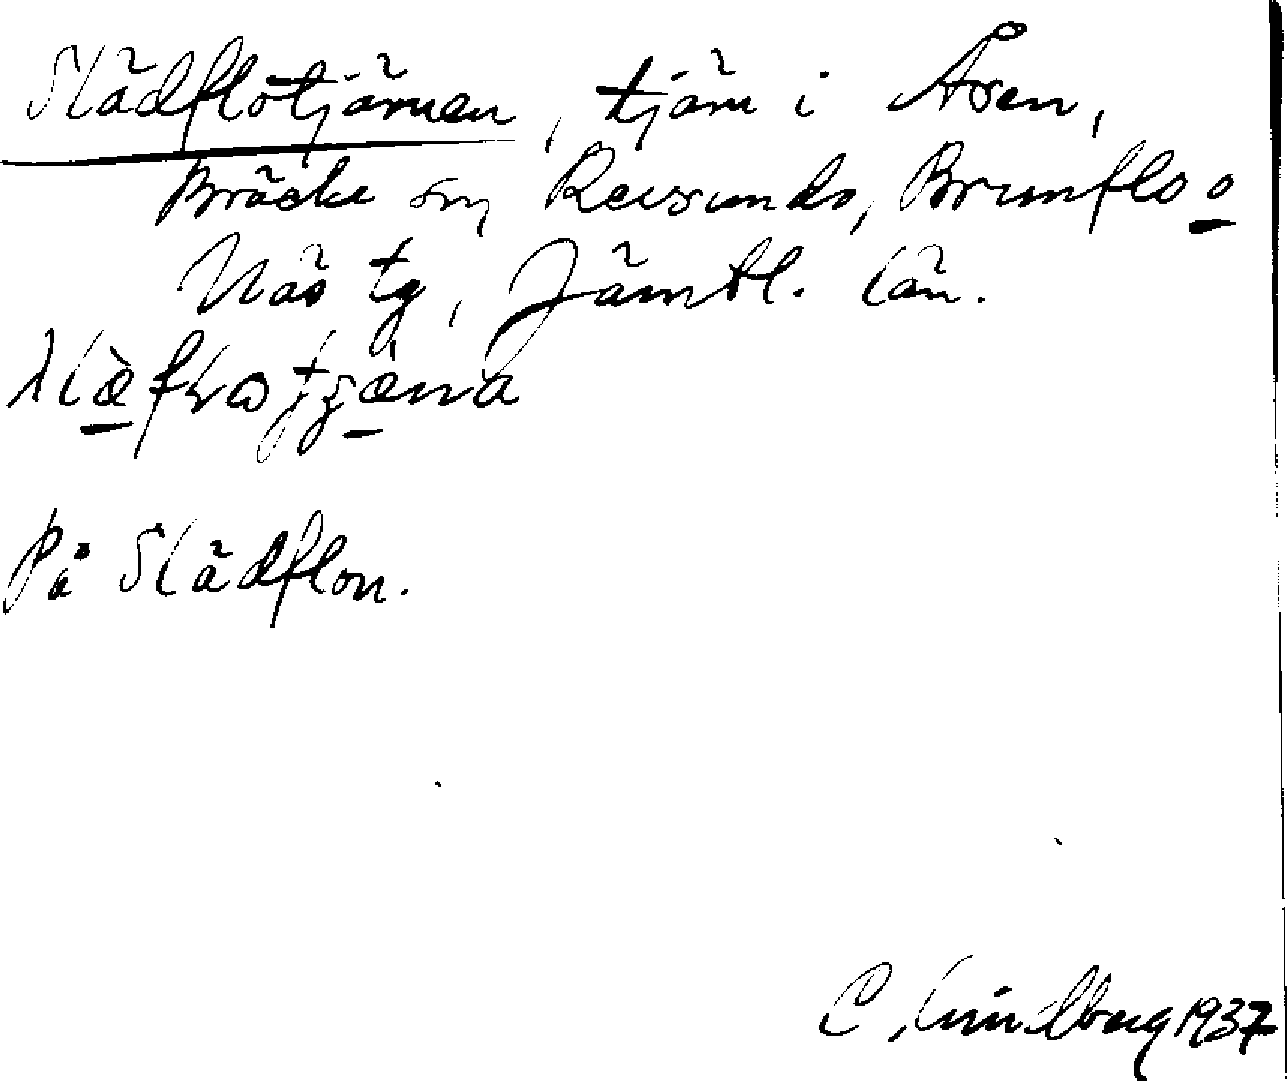 Slädflotjärnen, tjärn i Åsen,
Bräcke sn, Revsunds, Brunflo o
Näs tg, Jämtl. län.
På Slädflon.
C. Lindberg 1937